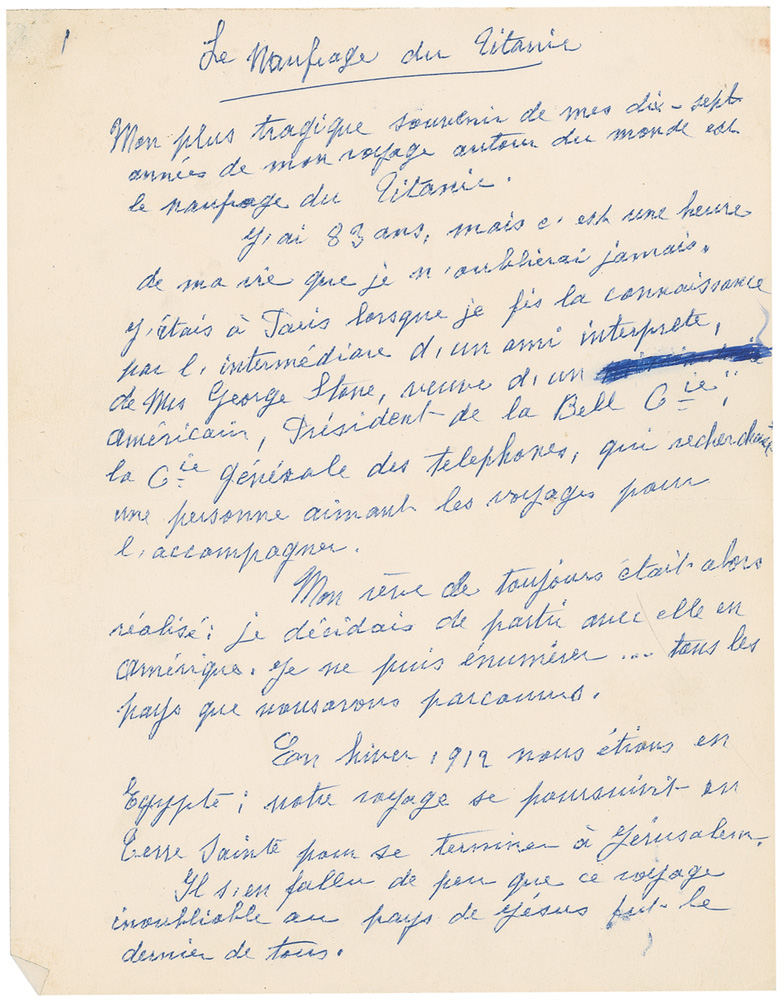 1
Le Naufrage du Titanic
Mon plus tragique souvenir de mes dix-sept
années de mon voyage autour du monde est
le naufrage du Titanic.
J'ai 83 ans, mais c'est une heure
de ma vie que je n'oublierai jamais.
J'étais à Paris lorsque je fis la connaissance
par l'intermédiaire d'un ami interprete,
de Mrs George Stone, veuve d'un
américain, Président de la Bell Cie",
la Cie générale des telephones, qui recherchait
une personne aimant les voyages pour
l'accompagner.
Mon rêve de toujours était alors
réalisé; je décidais de partir avec elle en
Amérique. Je ne puis énumérer ... tous les
pays que nous avons parcourus.
En hiver 1912 nous étions en
Egypte; notre voyage se poursuivit en
Terre Sainte pour se terminer à Jérusalem.
Il s'en fallu de peu que ce voyage
inoubliable au pays de Jésus fut le
dernier de tous.